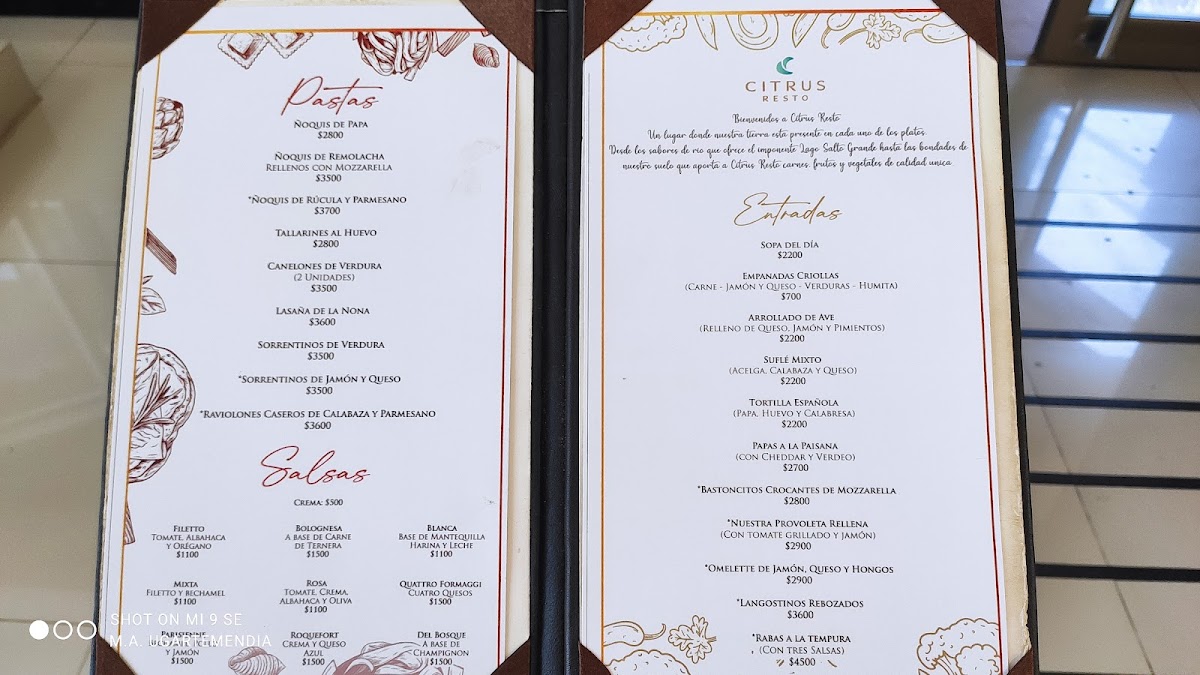 Pastas
Ñoquis de Papa
$2800
Ñoquis de Remolacha
Rellenos con Mozzarella
$3500
*Ñoquis de Rúcula y Parmesano
$3700
Tallarines al Huevo
$2800
Canelones de Verdura
(2 Unidades)
$3500
Lasaña de la Nona
$3600
Sorrentinos de Verdura
$3500
*Sorrentinos de Jamón y Queso
$3500
*Raviolones Caseros de Calabaza y Parmesano
$3600
Salsas
Crema: $500
Filetto
Tomate, Albahaca
y Orégano
$1100
Bolognesa
A base de Carne
de Ternera
$1500
Blanca
Base de Mantequilla
Harina y Leche
$1100
Mixta
Filetto y Bechamel
$1100
Rosa
Tomate, Crema,
Albahaca y Oliva
$1100
Quattro Formaggi
Cuatro Quesos
$1500
Parisienne
y Jamón
$1500
Roquefort
Crema y Queso
Azul
$1500
Del Bosque
A base de
Champignon
$1500
SHOT ON MI 9 SE
M.A. UGARTEMENDIA
CITRUS
RESTO
Bienvenidos a Citrus Resto
Un lugar donde nuestra tierra esta presente en cada uno de los platos.
Desde los sabores de rio que ofrece el imponente Lago Salto Grande hasta las bondades de
nuestro suelo que aporta a Citrus Resto carnes, frutos y vegetales de calidad unica
Entradas
Sopa del día
$2200
Empanadas Criollas
(Carne - Jamón y Queso - Verduras - Humita)
$700
Arrollado de Ave
(Relleno de Queso, Jamón y Pimientos)
$2200
Suflé Mixto
(Acelga, Calabaza y Queso)
$2200
Tortilla Española
(Papa, Huevo y Calabresa)
$2200
Papas a la Paisana
(con Cheddar y Verdeo)
$2700
*Bastoncitos Crocantes de Mozzarella
$2800
*Nuestra Provoleta Rellena
(Con tomate grillado y jamón)
$2900
*Omelette de Jamón, Queso y Hongos
$2900
*Langostinos Rebozados
$3600
*Rabas a la Tempura
(Con tres Salsas)
$4500